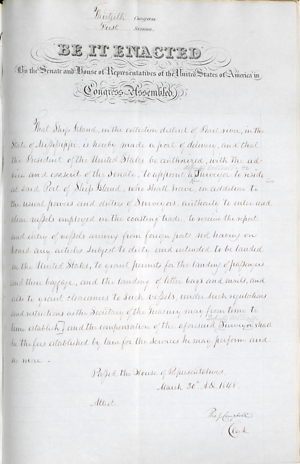 Thirtieth Congress
First Session
BE IT ENACTED
By the Senate and House of Representatives of the United States of America in
Congress Assembled,
That Ship Island, in the collection district of Pearl river, in the
State of Mississippi, is hereby made a port of delivery, and that
the President of the United States be authorized, with the ad-
vice and consent of the Senate, to appoint a Surveyor to reside
at said Port of Ship Island, who shall have, in addition to
the usual powers and duties of Surveyor, authority to enter and
clear vessels employed in the coasting trade, to receive the report
and entry of vessels arriving from foreign ports not having on
board any articles subject to duty and intended to be landed
in the United States, to grant permits for the landing of passengers
and their baggage, and the landing of letter bags and mails, and
also to grant clearances to such vessels, under such regulations
and restrictions as the Secretary of the Treasury may from time to
time establish, and the compensation of the aforesaid Surveyor shall
be the fees established by law for the services he may perform and
no more.
Passed the House of Representatives
March 30th A.D. 1848
Attest
Campbell
Clerk